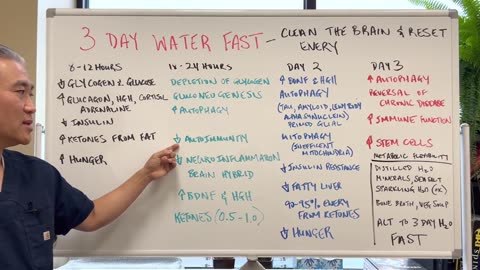 3 DAY WATER FAST - CLEAN THE BRAIN & RESET
ENERY
8-12 HOURS
↓ GLYCOGEN & GLUCOSE
↑ GLUCAGON, HGH, CORTISOL
ADRENALINE
↓ INSULIN
↑ KETONES FROM FAT
↑ HUNGER
24 HOURS
DEPLETION OF GLYCOGEN
GLUCONEOGENESIS
↑ AUTOPHAGY
↓ AUTOIMMUNITY
↓ NEUROINFLAMMATION
BRAIN HYBRID
↑ BDNF & HGH
KETONES (0.5-1.0)
DAY 2
↑ BDNF & HGH
AUTOPHAGY
(TAU, AMYLOID, LEWY BODY
ALPHA SYNUCLEIN)
GLIAL
MITOPHAGY
MITOCHONDRIA)
↓ INSULIN RESISTANCE
↓ FATTY LIVER
90-95% ENERY
FROM KETONES
↓ HUNGER
DAY 3
↑ AUTOPHAGY
REVERSAL OF
CHRONIC DISEASE
↑ IMMUNE FUNCTION
↑ STEM CELLS
METABOLIC FLEXIBILITY
DISTILLED H2O
MINERALS, SEA SALT
SPARKLING H2O (OK)
BONE BROTH, VEG SOUP
ALT TO 3 DAY H2O
FAST